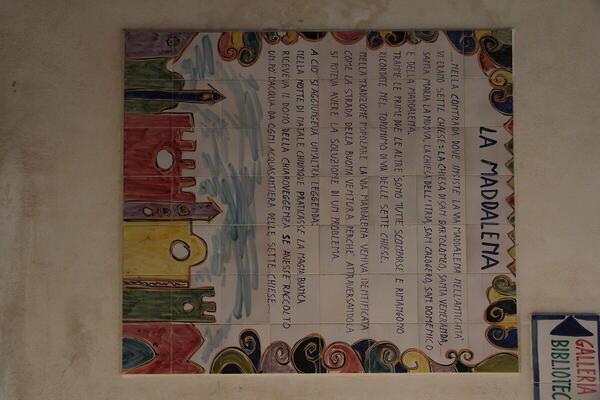 LA MADDALENA
....NELLA CONTRADA DOVE INSISTE LA VIA MADDALENA NELL'ANTICHITA'
VI ERANO SETTE CHIESE: LA CHIESA DI SAN BARTOLOMEO, SANTA VENERANDA,
SANTA MARIA LA NUOVA, LA CHIESA DELL'ITRIA, SAN CALOGERO, SAN DOMENICO
E DELLA MADDALENA.
TRANNE LE PRIME DUE LE ALTRE SONO TUTTE SCOMPARSE E RIMANGONO
RICORDATE NEL TOPONIMO DI VIA DELLE SETTE CHIESE.
NELLA TRADIZIONE POPOLARE LA VIA MADDALENA VENIVA IDENTIFICATA
COME LA STRADA DELLA BUONA VENTURA PERCHÉ ATTRAVERSANDOLA
SI POTEVA AVERE LA SOLUZIONE DI UN PROBLEMA.
A CIO' SI AGGIUNGEVA UN'ALTRA LEGGENDA:
NELLA NOTTE DI NATALE CHIUNQUE PRATICASSE LA MAGIA BIANCA
RICEVEVA IL DONO DELLA CHIAROVEGGENZA SE AVESSE RACCOLTO
UN PO' D'ACQUA DA OGNI ACQUASANTIERA DELLE SETTE CHIESE.
GALLERIA
BIBLIOTEC